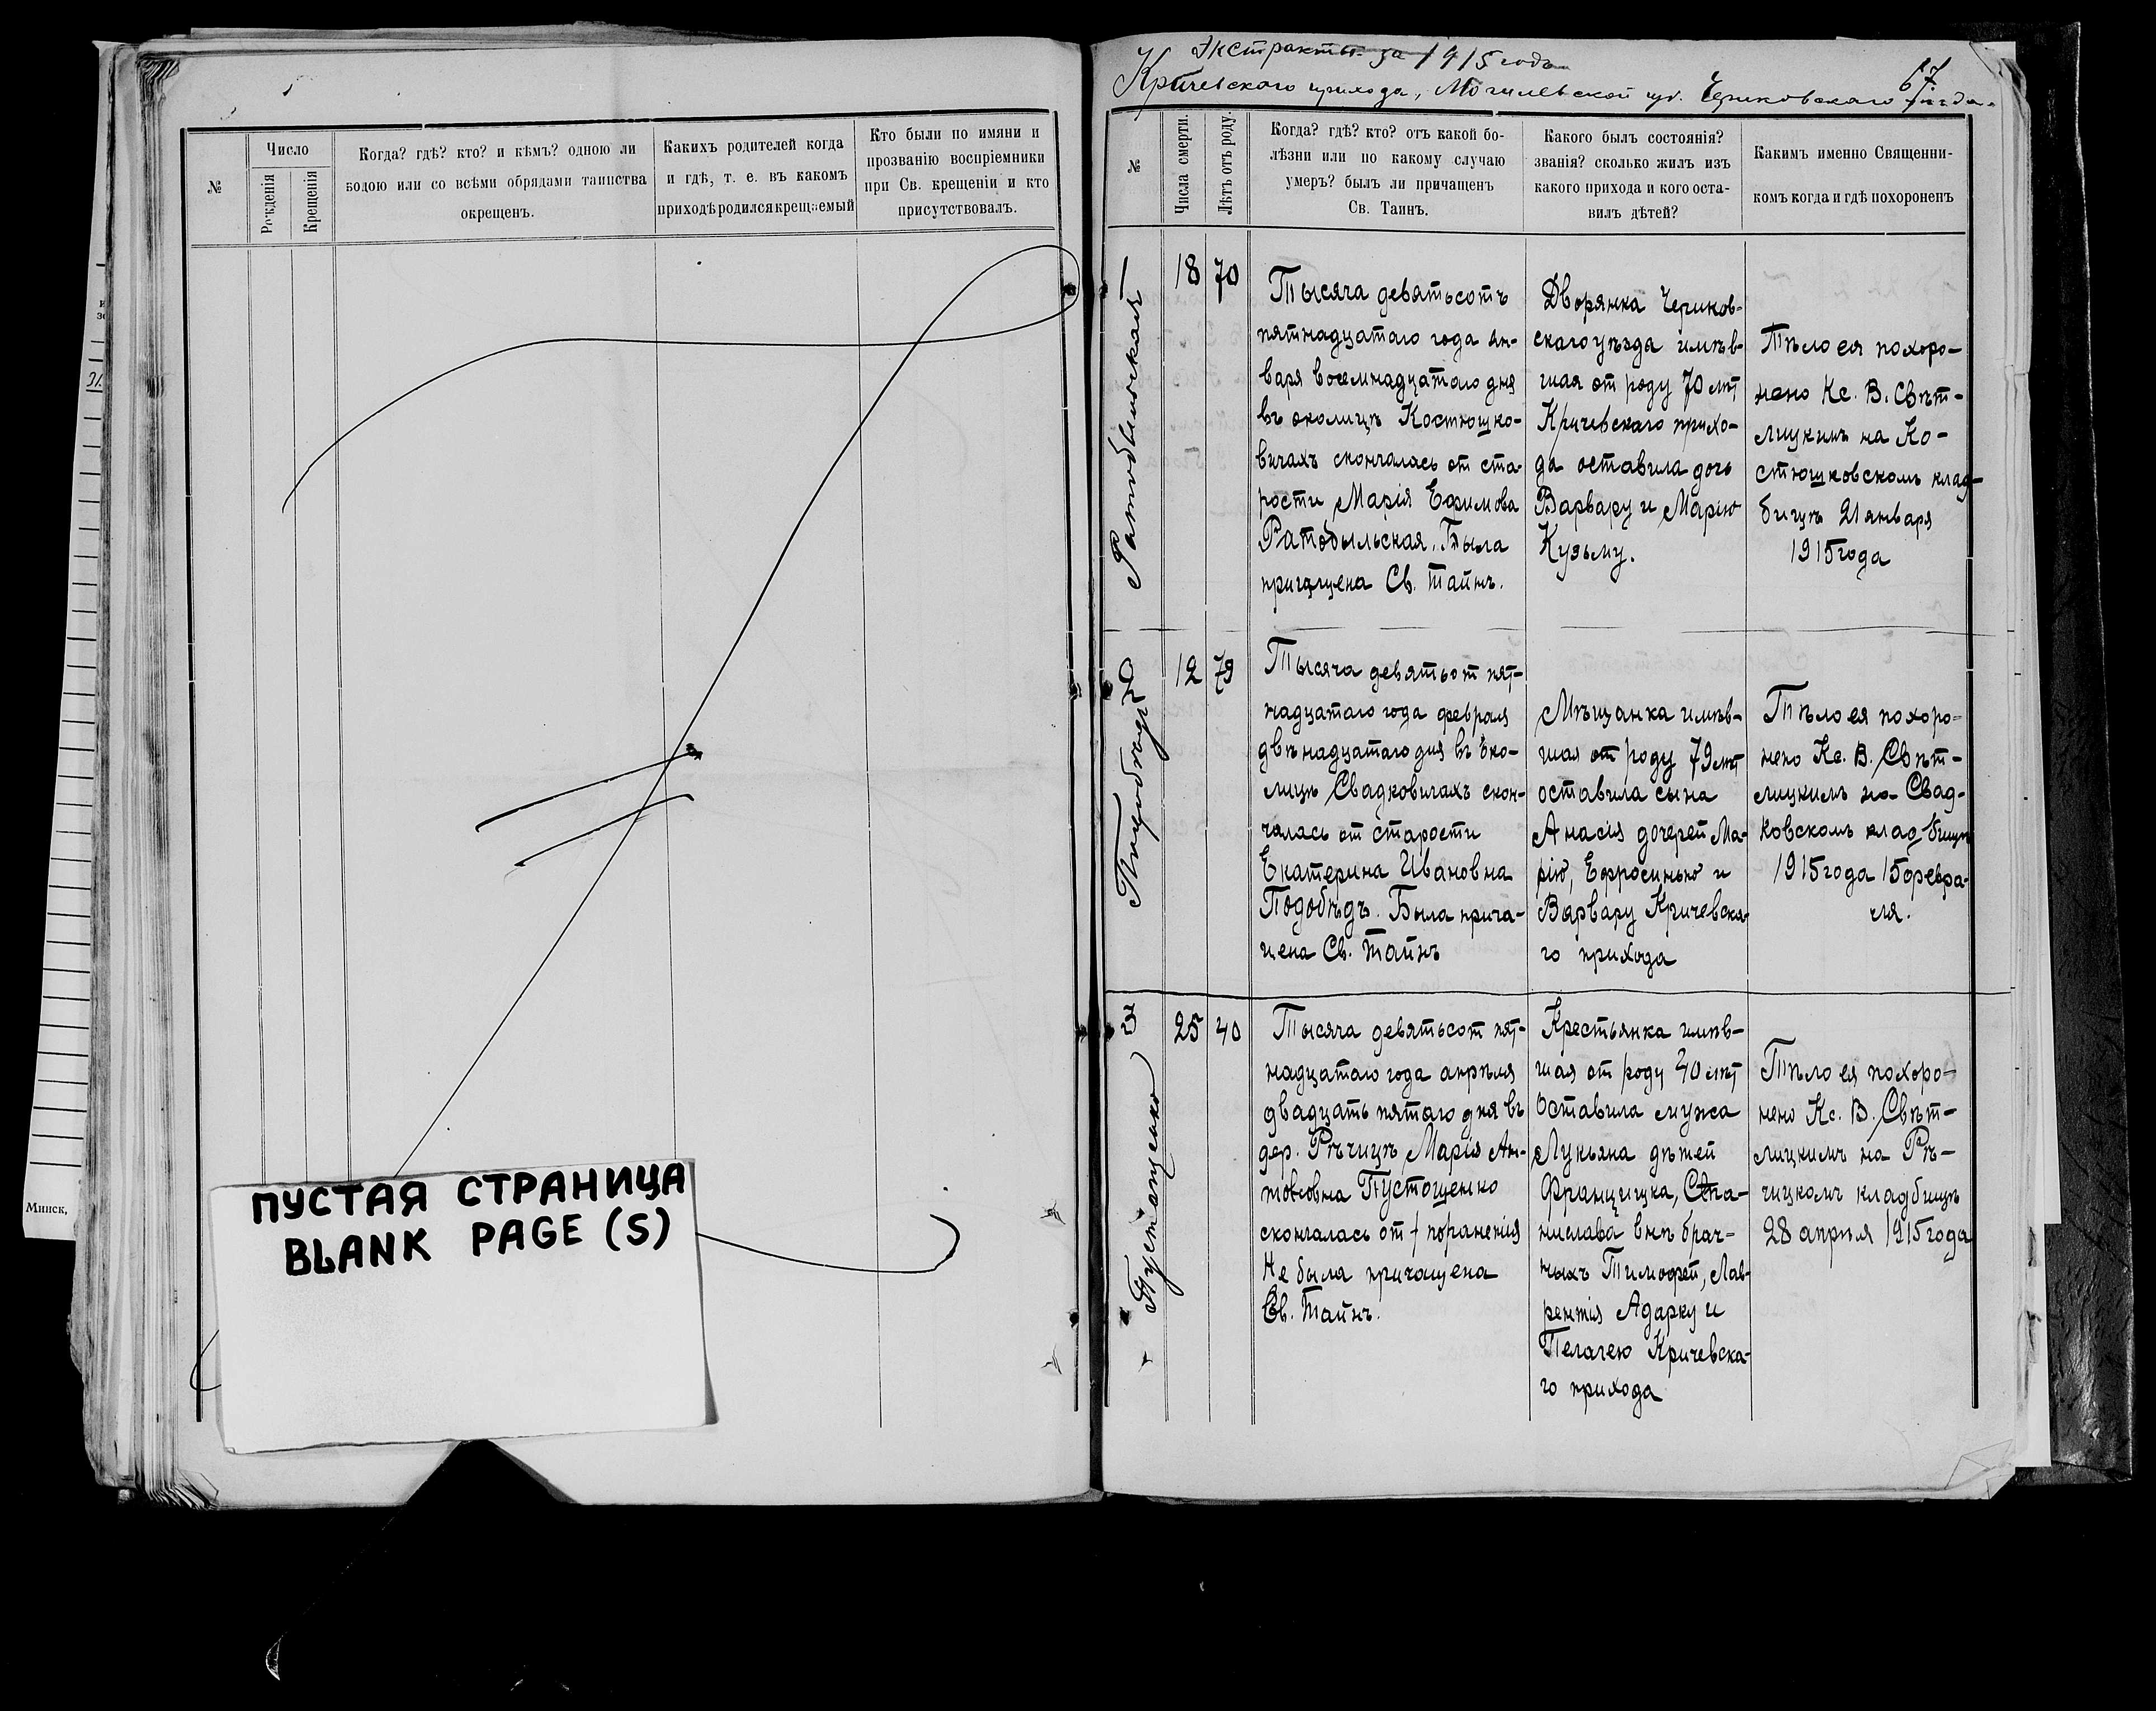 №
Число
Рожденія
Крещенія
Когда? гдѣ? кто? и кѣмъ? одною ли
водою или со всѣми обрядами таинства
окрещенъ.
Какихъ родителей когда
и гдѣ, т. е. въ какомъ
приходѣ родился крещаемый
Кто были по имяни и
прозванію воспріемники
при Св. крещеніи и кто
присутствовалъ.
ПУСТАЯ СТРАНИЦА
BLANK PAGE (S)
Минск,
31.
Экстракты за 1915 годъ
Кричевского прихода, Могилевской губ. Чериковского уѣзда.
67
№
Числа смерти.
Лѣтъ отъ роду.
Когда? гдѣ? кто? отъ какой бо-
лѣзни или по какому случаю
умеръ? былъ ли причащенъ
Св. Таинъ.
Какого былъ состоянія?
званія? сколько жилъ изъ
какого прихода и кого оста-
вилъ дѣтей?
Какимъ именно Священни-
комъ когда и гдѣ похороненъ
1
18
70
Тысяча девятьсотъ
пятнадцатаго года ян-
варя восемнадцатаго дня
въ околицѣ Костюшко-
вичахъ скончалась от ста-
рости Марія Ефимова
Ратобыльская. Была
причащена Св. Тайнъ.
Дворянка Чериков-
скаго уѣзда имѣв-
шая от роду 70 лѣт
Кричевскаго прихо-
да оставила дочь
Варвару и Марію
Кузьму.
Тѣло ея похоро-
нено Кс. В. Свѣт-
лицкимъ на Ко-
стюшковскомъ клад-
бищѣ 21 января
1915 года
2
Подобѣдъ
12
79
Тысяча девятьсот пят-
надцатаго года февраля
двѣнадцатаго дня въ око-
лицѣ Свадковичахъ скон-
чалась от старости
Екатерина Ивановна
Подобѣдъ. Была прича-
щена Св. Тайнъ
Мѣщанка имѣв-
шая от роду 79 лѣт
оставила сына
Анасія дочерей Ма-
рію, Ефросинью и
Варвару Кричевска-
го прихода
Тѣло ея похоро-
нено Кс. В. Свѣт-
лицкимъ на Свад-
ковскомъ кладбищѣ
1915 года 15 февра-
ля.
3
Пустошенко
25
40
Тысяча девятьсот пят-
надцатаго года апрѣля
двадцать пятаго дня въ
дер. Рѣчицѣ Марія Ан-
товновна Пустошенко
скончалась от поранения
Не была причащена
Св. Тайнъ.
Крестьянка имѣв-
шая от роду 40 лѣт
оставила мужа
Лукьяна дѣтей
Францишка, Ста-
нислава внѣ брач-
ныхъ Тимофей, Лав-
рентія Адарку и
Пелагею Кричевска-
го прихода
Тѣло ея похоро-
нено Кс. В. Свѣт-
лицкимъ на Рѣ-
чицкомъ кладбищѣ
28 апрѣля 1915 года